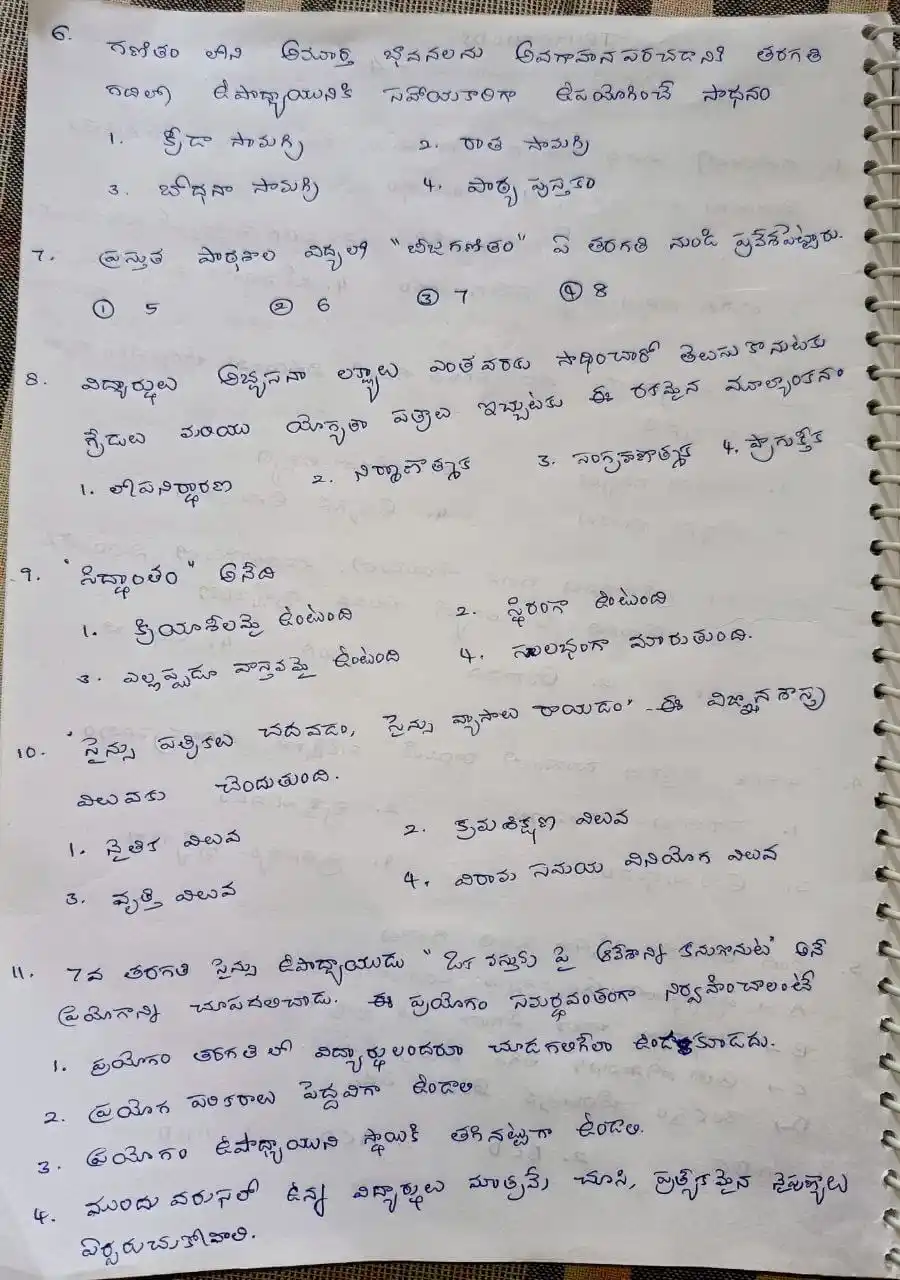 6. గణితం లోని అమూర్త భావనలను అవగాహన పరచడానికి తరగతి
గదిలో ఉపాధ్యాయునికి సహాయకారిగా ఉపయోగించే సాధనం
1. క్రీడా సామగ్రి 2. రాత సామగ్రి
3. బోధనా సామగ్రి 4. పాఠ్య పుస్తకం
7. ప్రస్తుత పాఠశాల విద్యలో "బీజగణితం" ఏ తరగతి నుండి ప్రవేశపెట్టారు.
① 5 ② 6 ③ 7 ④ 8
8. విద్యార్థులు అభ్యసనా లక్ష్యాలు ఎంత వరకు సాధించారో తెలుసు కొనుటకు
గ్రేడులు మరియు యోగ్యతా పత్రాలు ఇచ్చుటకు ఈ రకమైన మూల్యాంకనం
1. లోపనిర్ధారణ 2. నిర్మాణాత్మక 3. సంగ్రహణాత్మక 4. ప్రాగుక్తీక
9. 'సిద్ధాంతం" అనేది
1. క్రియాశీలమై ఉంటుంది 2. స్థిరంగా ఉంటుంది
3. ఎల్లప్పుడూ వాస్తవమై ఉంటుంది 4. సులభంగా మారుతుంది.
10. 'సైన్సు పత్రికలు చదవడం, సైన్సు వ్యాసాలు రాయడం' - ఈ విజ్ఞాన శాస్త్ర
విలువకు చెందుతుంది.
1. నైతిక విలువ 2. క్రమశిక్షణ విలువ
3. వృత్తి విలువ 4. విరామ సమయ వినియోగ విలువ
11. 7వ తరగతి సైన్సు ఉపాధ్యాయుడు "ఒక వస్తువు పై ఆవేశాన్ని కనుగొనుట" అనే
ప్రయోగాన్ని చూపదలిచాడు. ఈ ప్రయోగం సమర్థవంతంగా నిర్వహించాలంటే
1. ప్రయోగం తరగతి లో విద్యార్థులందరూ చూడగలిగేలా ఉండకూడదు.
2. ప్రయోగ పరికరాలు పెద్దవిగా ఉండాలి
3. ప్రయోగం ఉపాధ్యాయుని స్థాయికి తగినట్టుగా ఉండాలి.
4. ముందు వరుసలో ఉన్న విద్యార్థులు మాత్రమే చూసి, ప్రత్యేకమైన నైపుణ్యాలు
ఏర్పరుచుకోవాలి.